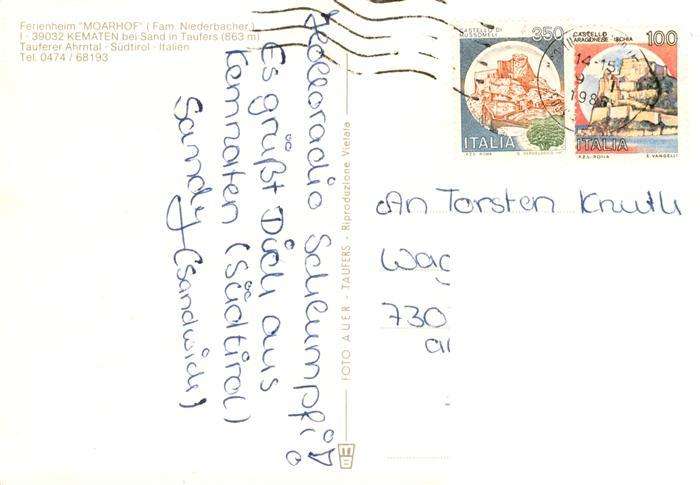 Ferienheim "MOARHOF" (Fam. Niederbacher)
I - 39032 KEMATEN bei Sand in Taufers (863 m)
Tauferer Ahrntal - Südtirol - Italien
Tel. 0474 / 68193
Holloradio Schlumpfi
Es grüßt Dich aus
Kematen (Südtirol)
Sandy (Sandwich)
FOTO AUER - TAUFERS - Riproduzione Vietata
CASTELLO DI MUSSOMELI 350
ITALIA
CASTELLO ARAGONESE - ISCHIA 100
ITALIA
I.P.Z.S. ROMA E. VANGELLI
14-15
9
198
An Torsten Knuth
Wag
730